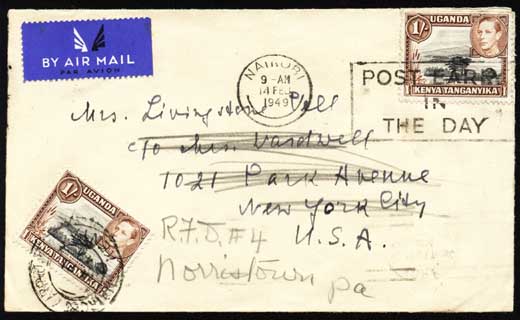 BY AIR MAIL
PAR AVION
NAIROBI
9-AM
14 FEB
1949
POST EARLY
IN
THE DAY
UGANDA
1/-
KENYA TANGANYIKA
Mrs. Livingstone Pell
c/o Mrs. Wardwell
1021 Park Avenue
New York City
U.S.A.
R.F.D.#4
Norristown
Pa
1/-
UGANDA
KENYA TANGANYIKA